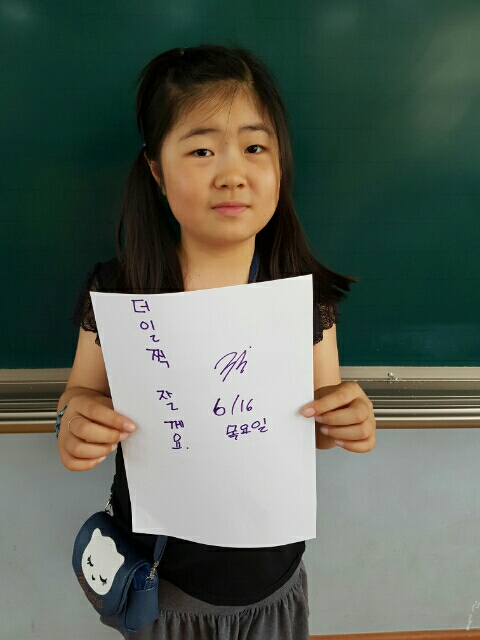 더일찍 잘께요.
6/16
목요일